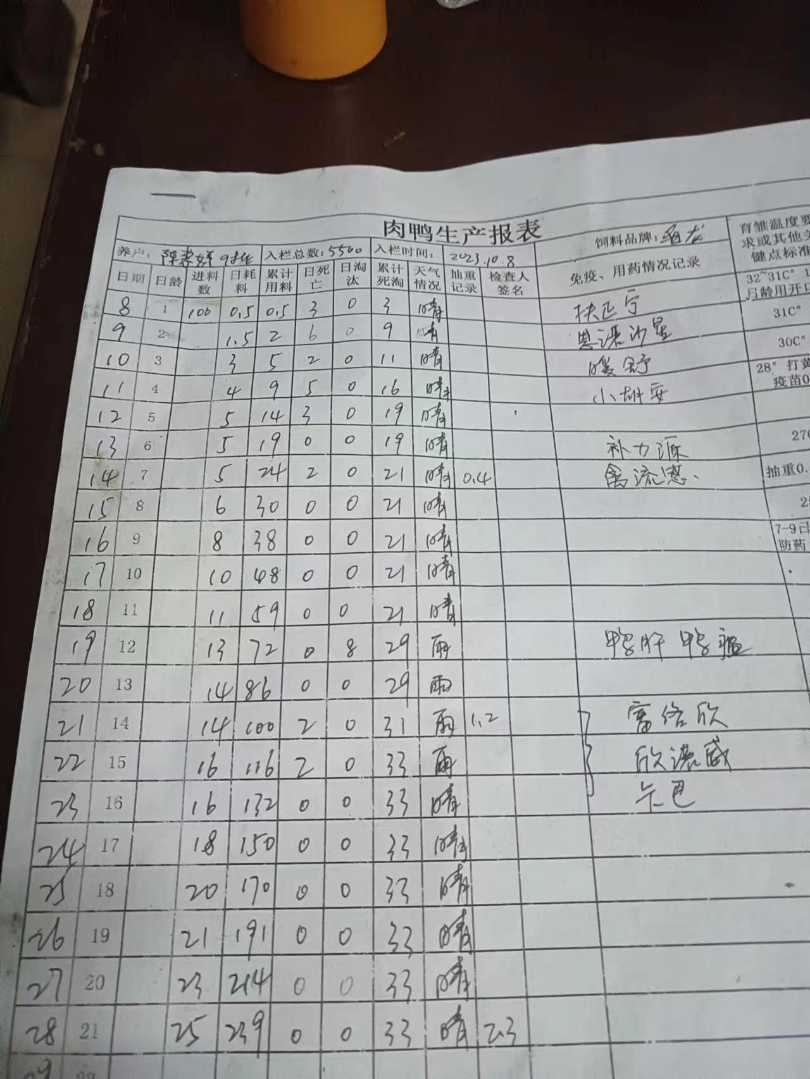 肉鸭生产报表
养户: 入栏总数:5500 入栏时间: 2023.10.8 饲料品牌: 育雏温度要
求或其他关
键点标准
日期 日龄 进料数 日耗料 累计用料 日死亡 日淘汰 累计死淘 天气情况 抽重记录 检查人签名 免疫、用药情况记录 32~31C°
日龄用开
8 1 100 0.5 0.5 3 0 3 晴 扶正宁 31C°
9 2 1.5 2 6 0 9 晴 恩诺沙星 30C°
10 3 3 5 2 0 11 晴 28°打黄
疫苗0
11 4 4 9 5 0 16 晴
12 5 5 14 3 0 19 晴
13 6 5 19 0 0 19 晴 补力源 27
14 7 5 24 2 0 21 晴 0.4 禽流感 抽重0.
15 8 6 30 0 0 21 晴
16 9 8 38 0 0 21 晴 7-9日
防药
17 10 10 48 0 0 21 晴
18 11 11 59 0 0 21 晴
19 12 13 72 0 8 29 雨 鸭肝 鸭瘟
20 13 14 86 0 0 29 雨
21 14 14 100 2 0 31 雨 1.2
22 15 16 116 2 0 33 雨
23 16 16 132 0 0 33 晴
24 17 18 150 0 0 33 晴
25 18 20 170 0 0 33 晴
26 19 21 191 0 0 33 晴
27 20 23 214 0 0 33 晴
28 21 25 239 0 0 33 晴 2.3